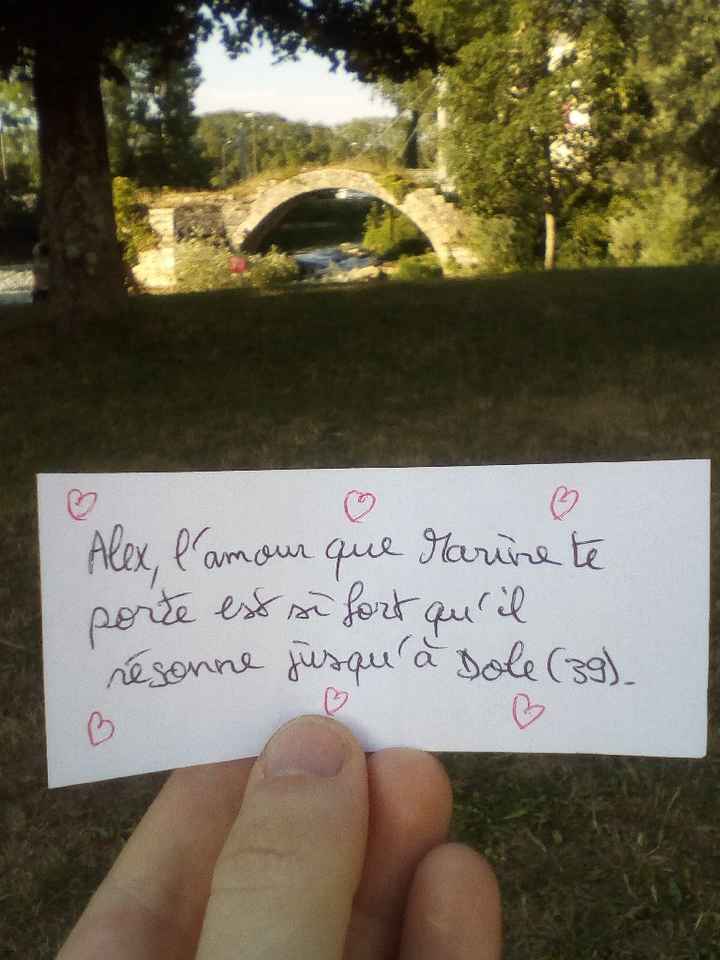 Alex, l'amour que Marine te
porte est si fort qu'il
résonne jusqu'à Dole (39).